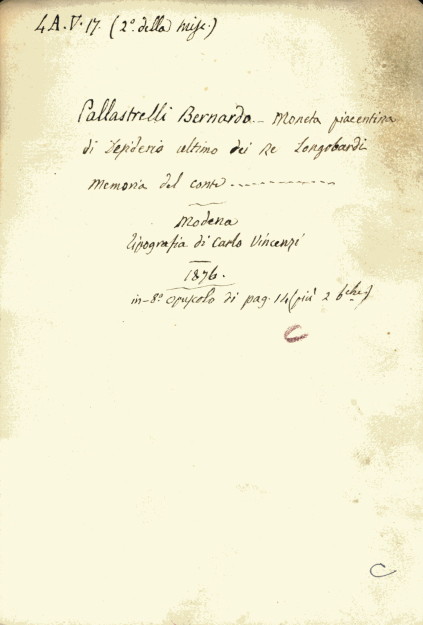 4 A. V. 17. (2º della misc.)
Pallastrelli Bernardo. - Moneta piacentina
di Desiderio ultimo dei Re Longobardi
Memoria del conte ------------
Modena
Tipografia di Carlo Vincenzi
1876.
in-8º opuscolo di pag. 14 (più 2 bche.)
C
C